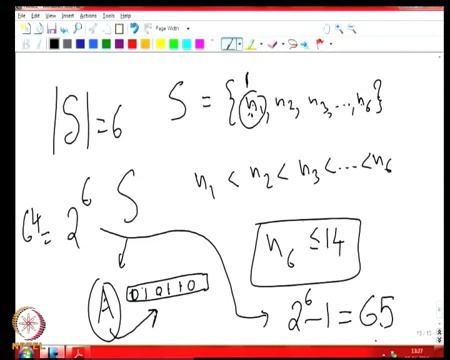 File Edit View Insert Actions Tools Help
Page Width
1
|S| = 6 S = {n₁, n₂, n₃, ..., n₆}
n₁ < n₂ < n₃ < ... < n₆
64 = 2⁶ S
n₆ ≤ 14
A 010110
2⁶ - 1 = 65
13:27